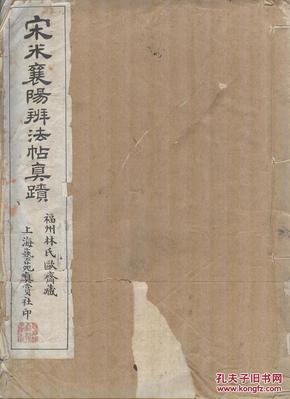 宋米襄陽辨法帖真蹟
福州林氏歐齋藏
上海藝苑真賞社印
孔夫子旧书网